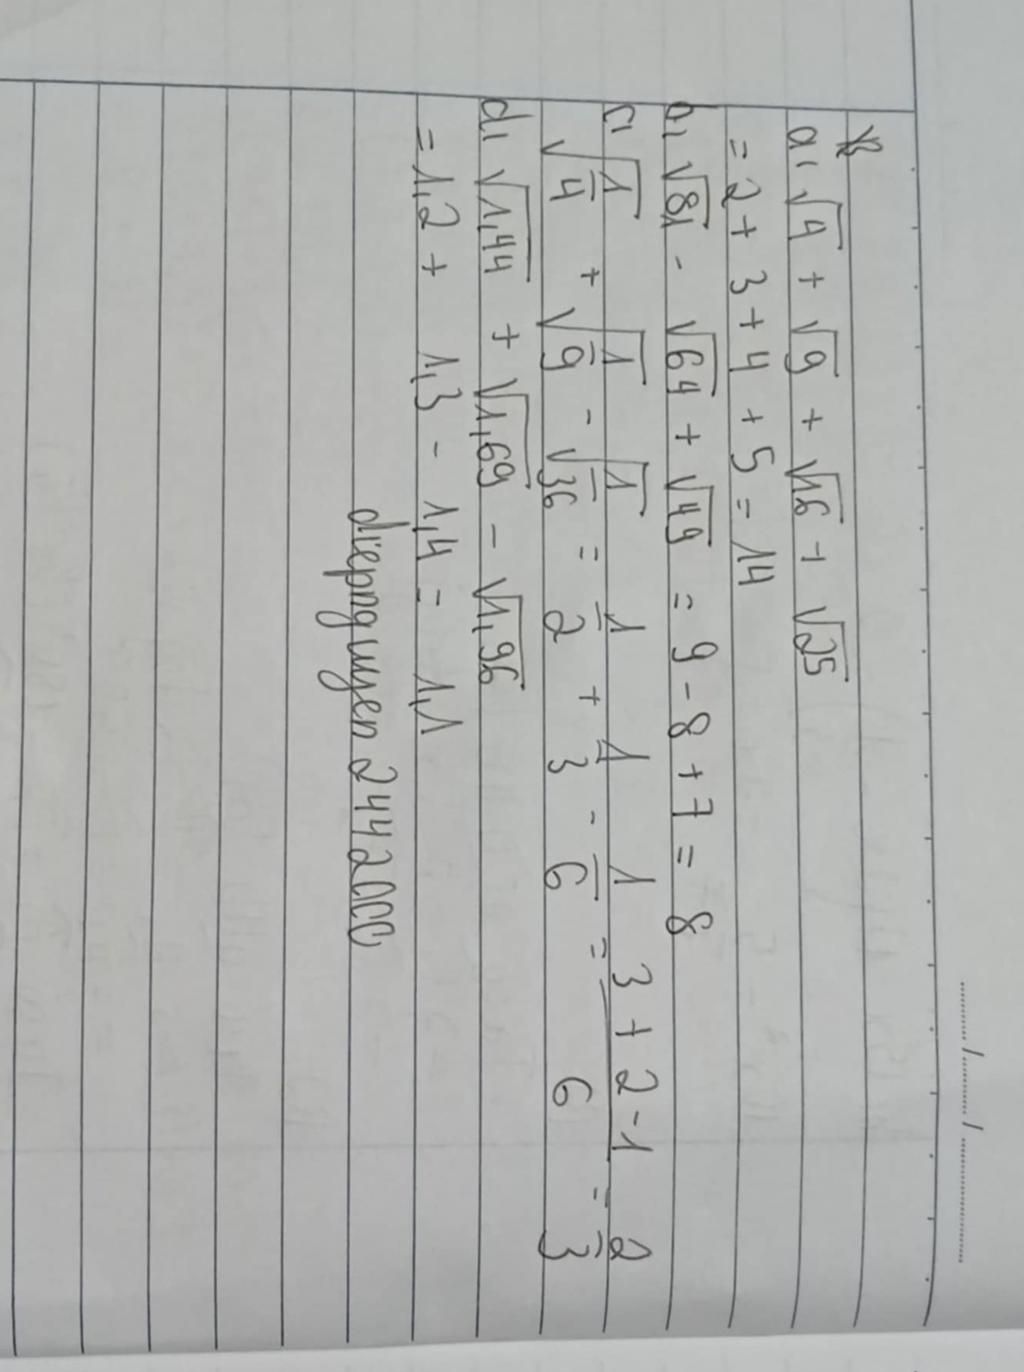 a, √4 + √9 + √16 + √25
= 2 + 3 + 4 + 5 = 14
b, √81 - √64 + √49 = 9 - 8 + 7 = 8
c, √(1/4) + √(1/9) - √(1/36) = 1/2 + 1/3 - 1/6 = (3 + 2 - 1)/6 = 2/3
d, √1,44 + √1,69 - √1,96
= 1,2 + 1,3 - 1,4 = 1,1
diepnguyen2442000